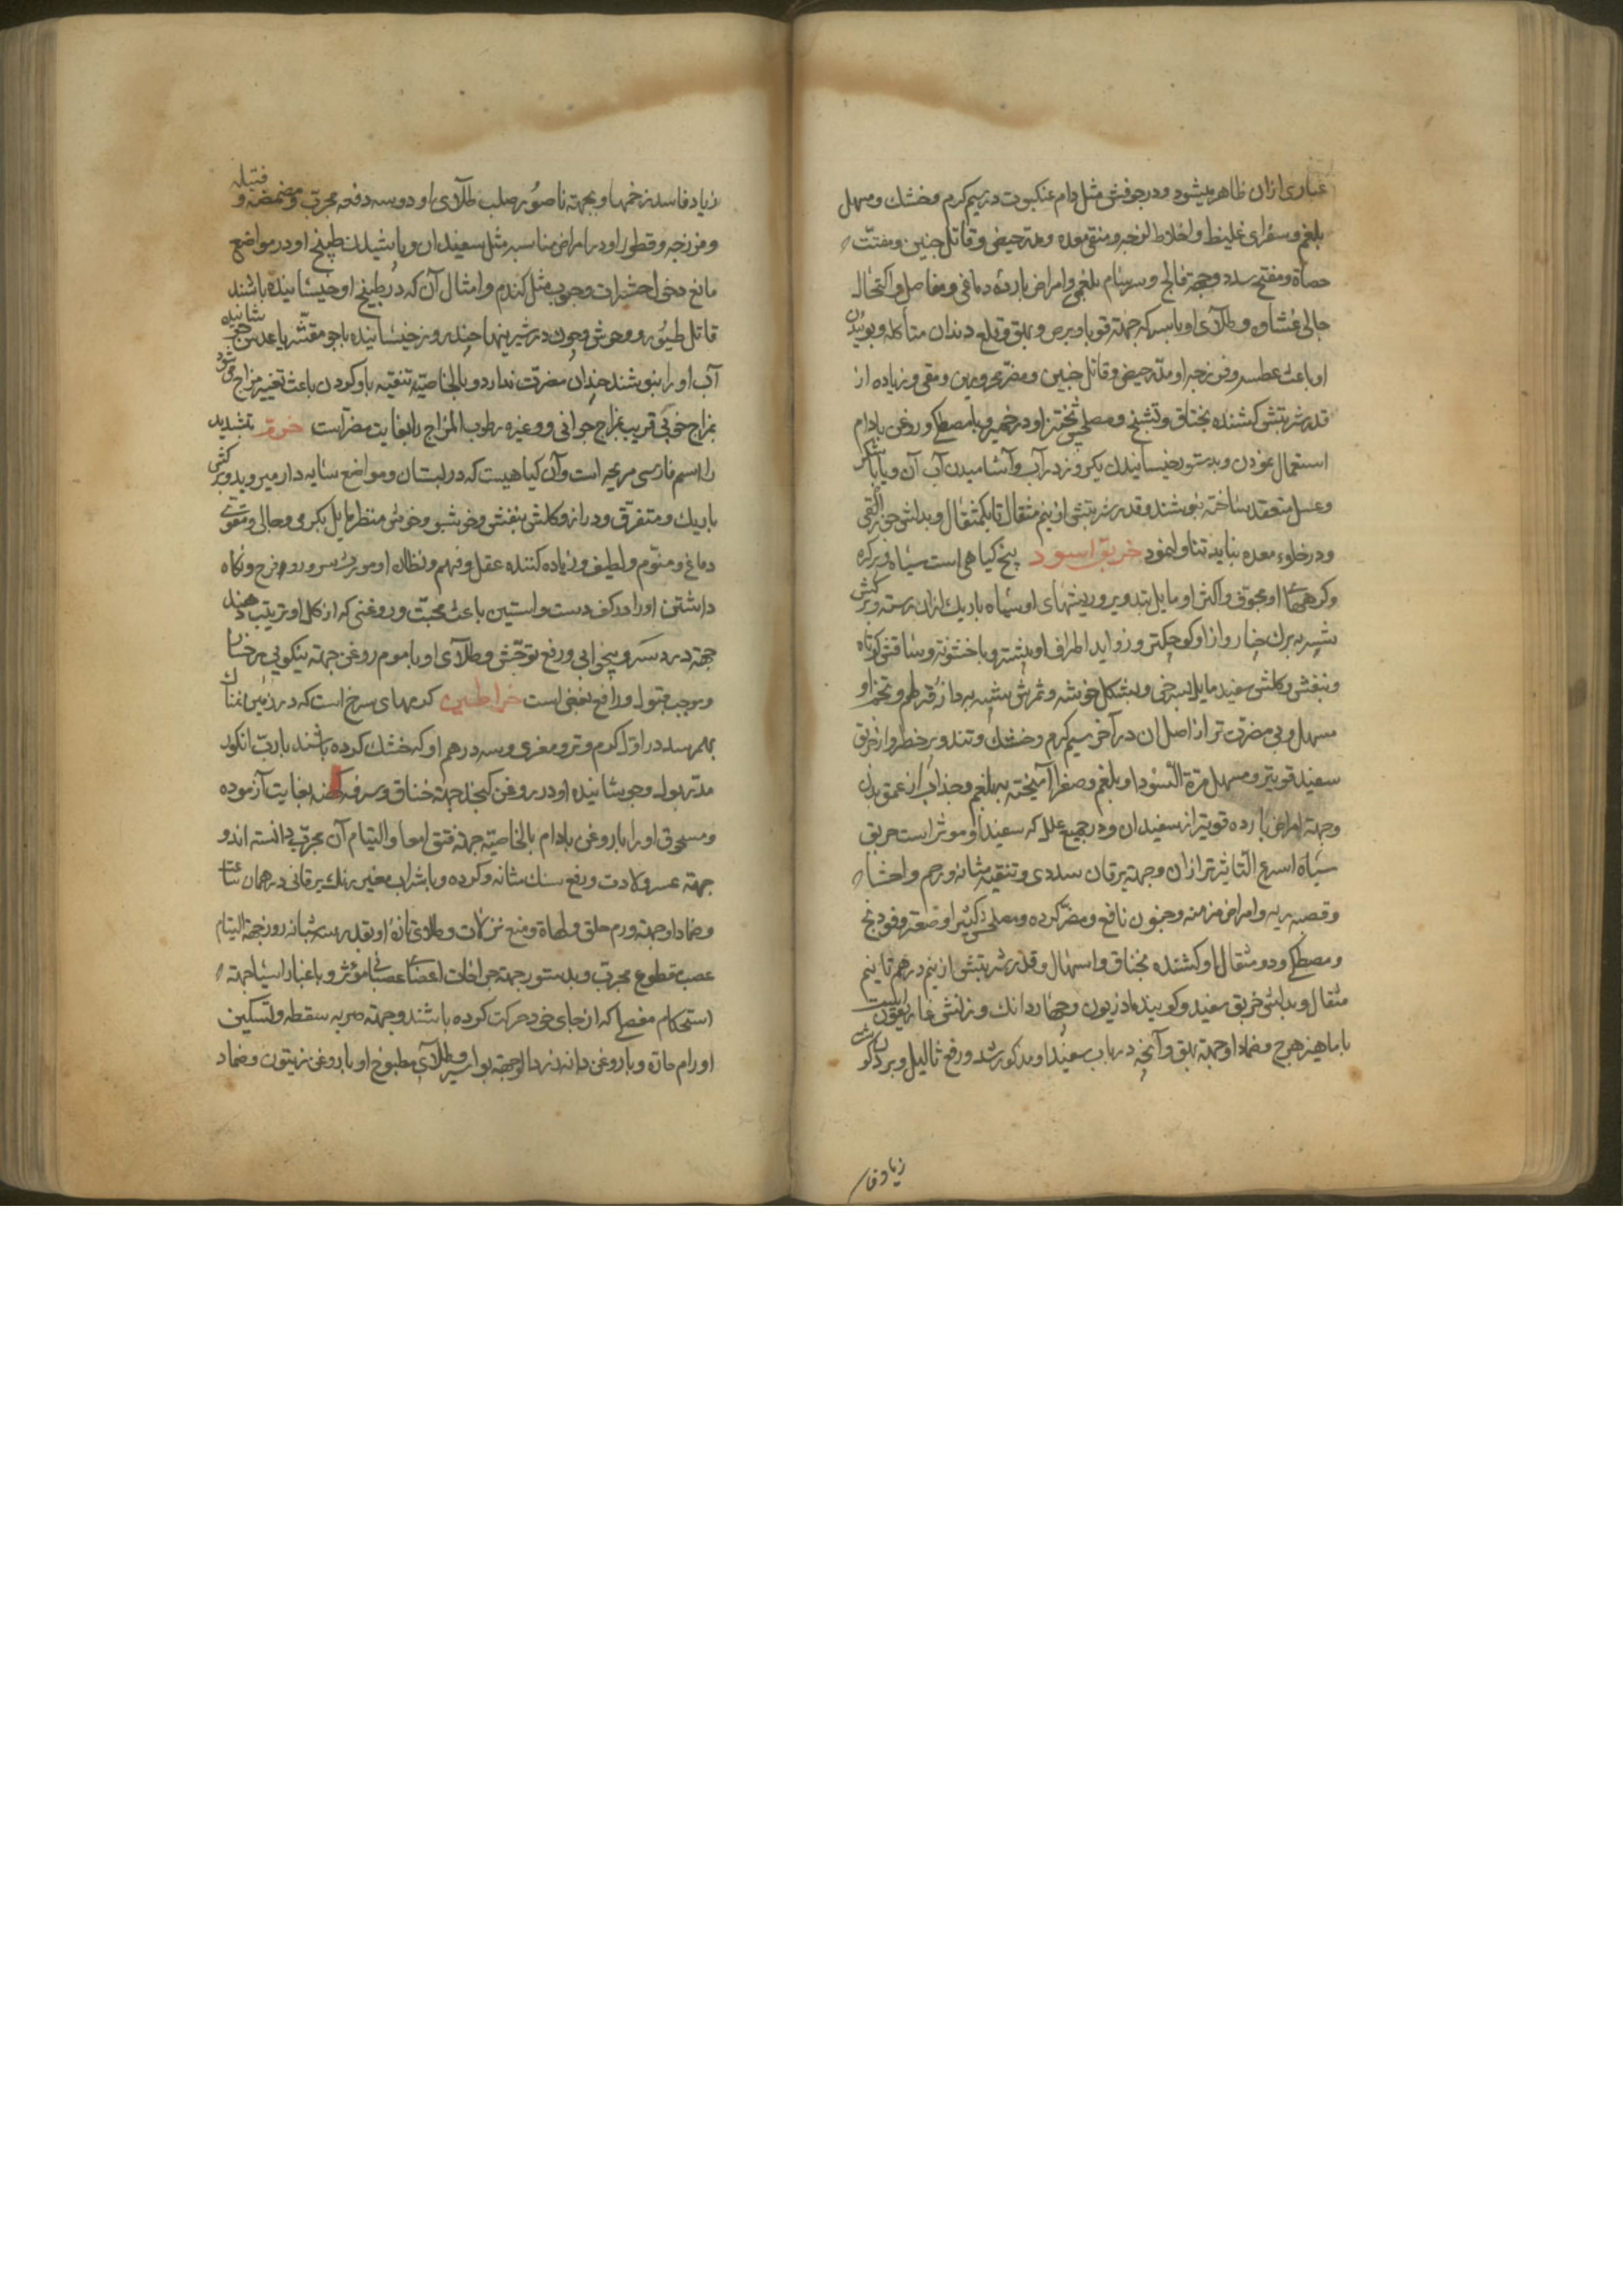 غباری ازان ظاهر میشود و در جوفش مثل دام عنکبوت در سیم کرم و خشك و مسهل
بلغم و صفرای غلیظ و اخلاط لزجه و منقی معده و مدر حیض و قاتل جنین و مفتت
حصاة و مفتح سدد و جهة فالج و سرسام بلغمی و امراض بارده دماغی و مفاصل و اکتحال
جالی غشاوه و طلآی او با سرکه جهة قوبا و برص و بهق و قلع دندان متأکله و بوئیدن
او باعث عطسه و فرزجه او مدر حیض و قاتل جنین و مضر محرورین و مقی و زیاده از
قدر شربتش کشنده بخناق و تشنج و مصلحش پختن او در خمیر و با مصطکی و روغن بادام
استعمال نمودن و بدستور خیسانیدن یکروز در آب و آشامیدن آب آن و یا با شکر
و عسل منعقد ساخته بنوشند و قدر شربتش از نیم مثقال تا یکمثقال و بدلش جوز القی
و در خلوء معده نباید تناول نمود خربق اسود بیخ کیاهی است سیاه و پر کره
و کرههای او مجوف و اکثر او مایل بتدویر و ریشهای او سیاه باریك ازان رسته و برکش
شبیه ببرك خیار و از او کوچکتر و زواید اطراف او بیشتر و با خشونة و ساقش کوتاه
و بنفش و کلش سفید مایل بسرخی و بشکل خوشه و ثمرش شبیه بدانه قرطم و تخم او
مسهل و بی مضرت تر از اصل ان در آخر سیم کرم و خشك و تند و پر خطر و از خربق
سفید قویتر و مسهل مرة السودا و بلغم و صفرا آمیخته ببلغم و جذاب از عمق بدن
و جهة امراض بارده قویتر از سفید ان و در جمیع علل که سفید او موثر است خربق
سیاه اسرع التاثیر تر ازان و جهة یرقان سددی و تنقیه مثانه و رحم و احشا
و قصبه ریه و امراض مزمنه و جنون نافع و مضر کرده و مصلحش کثیرا و صعتر و فودنج
و مصطکی و دو مثقال او کشنده بخناق و اسهال و قدر شربتش از نیم درهم تا نیم
مثقال و بدلش خربق سفید و کویند ماذریون و چهار دانك وزنش غاریقون است
با ماهیزهرج و ضماد او جهة بهق و آنچه در باب سفید او مذکور شد و رفع ثالیل و بردن کوشت
زیاد فا
زیاد فاسد زخمها و بجهته ناصور صلب طلآی او دو سه دفعه مجرب و مضمضه و فتیله
و فرزجه و قطور او در امراض مناسبه مثل سفید ان و پاشیدن طبیخ او در مواضع
مانع دخول حشرات و حبوب مثل کندم و امثال آن که در طبیخ او خیسانیده باشند
قاتل طیور و وحوش و چون در شیر بنهد چند روز خیسانیده با جو مقشر یا عدس جوشانیده
آب او را بنوشند چندان مضرت ندارد و بالخاصیة تنقیه باو کردن باعث تغییر مزاج میشود
بمزاج خوبی قریب بمزاج جوانی و و غیره رطوب المزاج را بغایت مضر است خرم بتشدید
را اسم فارسی مریحه است و آن کیاهیست که در بستان و مواضع سایه دار میروید و برکش
باریك و متفرق و دراز و کلش بنفش و خوشبو و خوش منظر مایل بکرمی و جالی و مقوی
دماغ و منوم و لطیف و زیاده کننده عقل و فهم و نظر او مورث سرور و فرح و نکاه
داشتن او در کف دست و آستین باعث محبت و روغنی که از کل او ترتیب دهند
جهة درد سر و بیخوابی و رفع توحش و طلآی او با موم روغن جهة نیکویی رخسار
و موجب قبول و رافع بغض است خراطین کرمهای سرخ است که در زمین نمناك
بهم رسد در اول کرم و تر و مغری و سه درهم او که خشك کرده باشند با رب انکور
مدر بول و جوشانیده او در روغن کنجد جهة خناق و سرفه کهنه بغایت آزموده
و مسحوق او را با روغن بادام بالخاصیة جهة فتق امعا و التیام آن مجرب دانسته اند و
جهته عسر ولادت و رفع سنك مثانه و کرده و با شراب مغیر رنك یرقانی در همان ساعت
و ضماد او جهة ورم حلق و لهاة و منع نزلات و طلای تازه او بقدر سه شبانه روز جهة التیام
عصب مقطوع مجرب و بدستور جهة جراحات اعضای عصبانی مؤثر و با غبار آسیا جهة
استحکام مفصل که از جای خود حرکت کرده باشند و جهة ضربه سقطه و تسکین
اورام حاره و با روغن دانه زردالو جهة بواسیر و طلآی مطبوخ او با روغن زیتون و ضماد